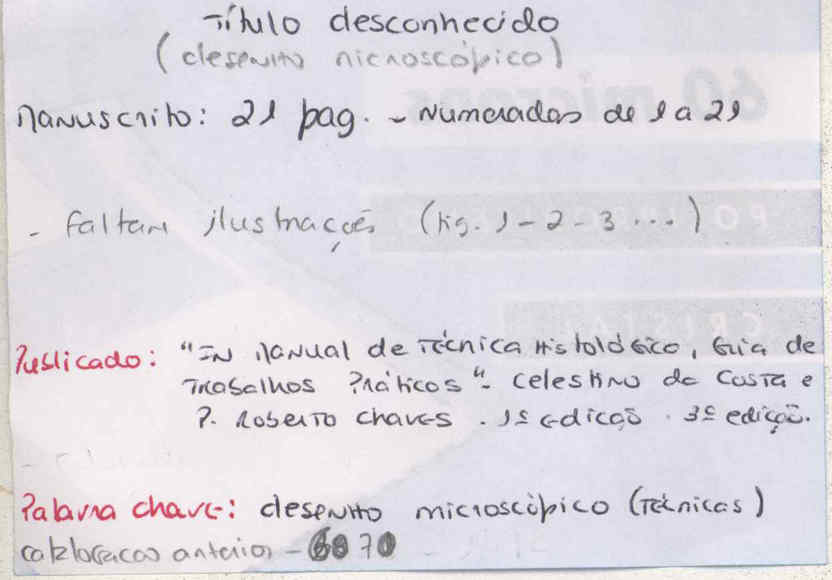 Título desconhecido
(desenho microscópico)
Manuscrito: 21 pag. - Numeradas de 1 a 21
- Faltam ilustrações (fig. 1-2-3...)
Publicado: "IN Manual de Técnica Histológico, Guia de
Trabalhos Práticos" - Celestino da Costa e
P. Roberto Chaves . 1ª edição . 3ª edição.
Palavra chave: desenho microscópico (Técnicas)
catalogacao anterior - 70